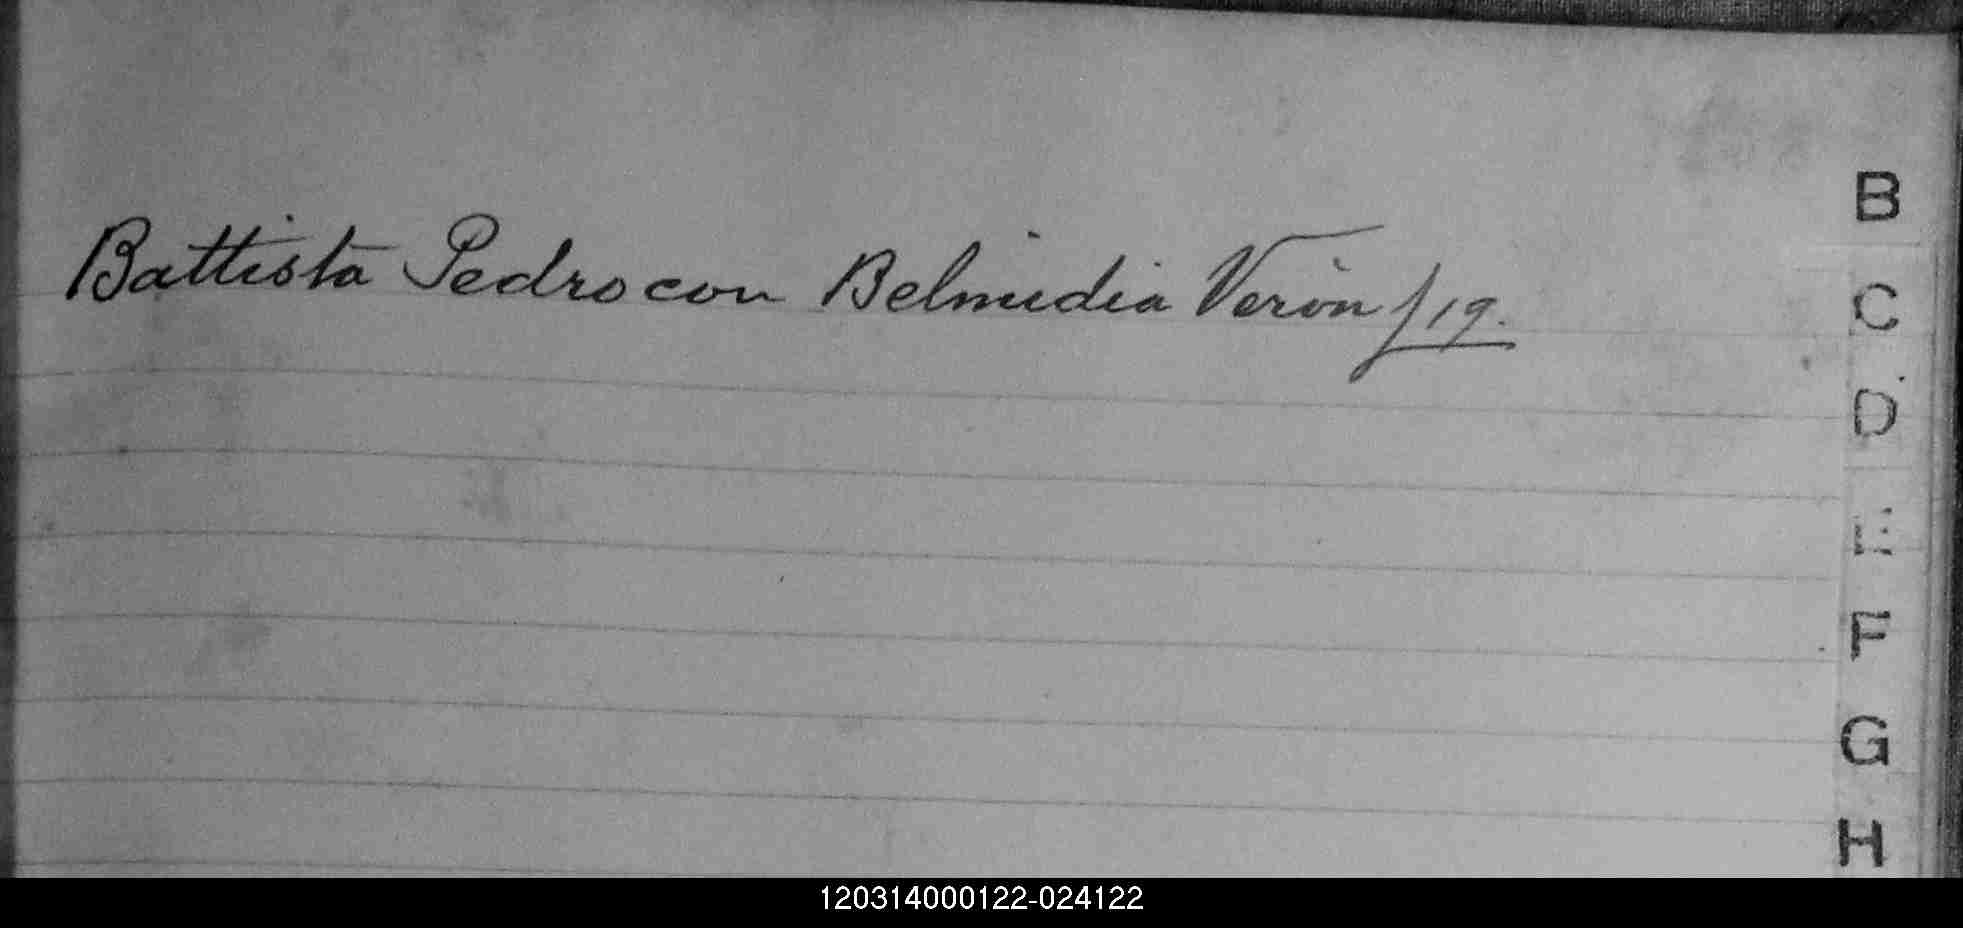 Battista Pedro con Belmidia Verón f 19.
B
C
D
E
F
G
H
120314000122-024122